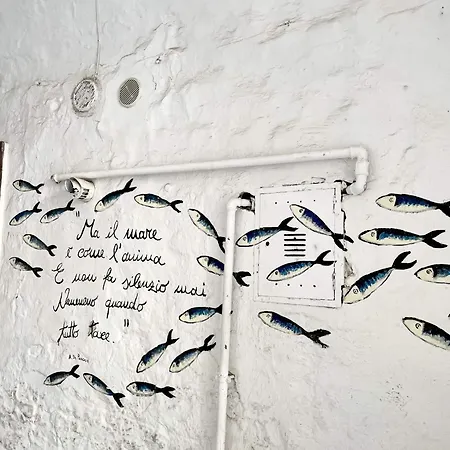 "Ma il mare
è come l'anima
E non fa silenzio mai
Nemmeno quando
tutto tace."